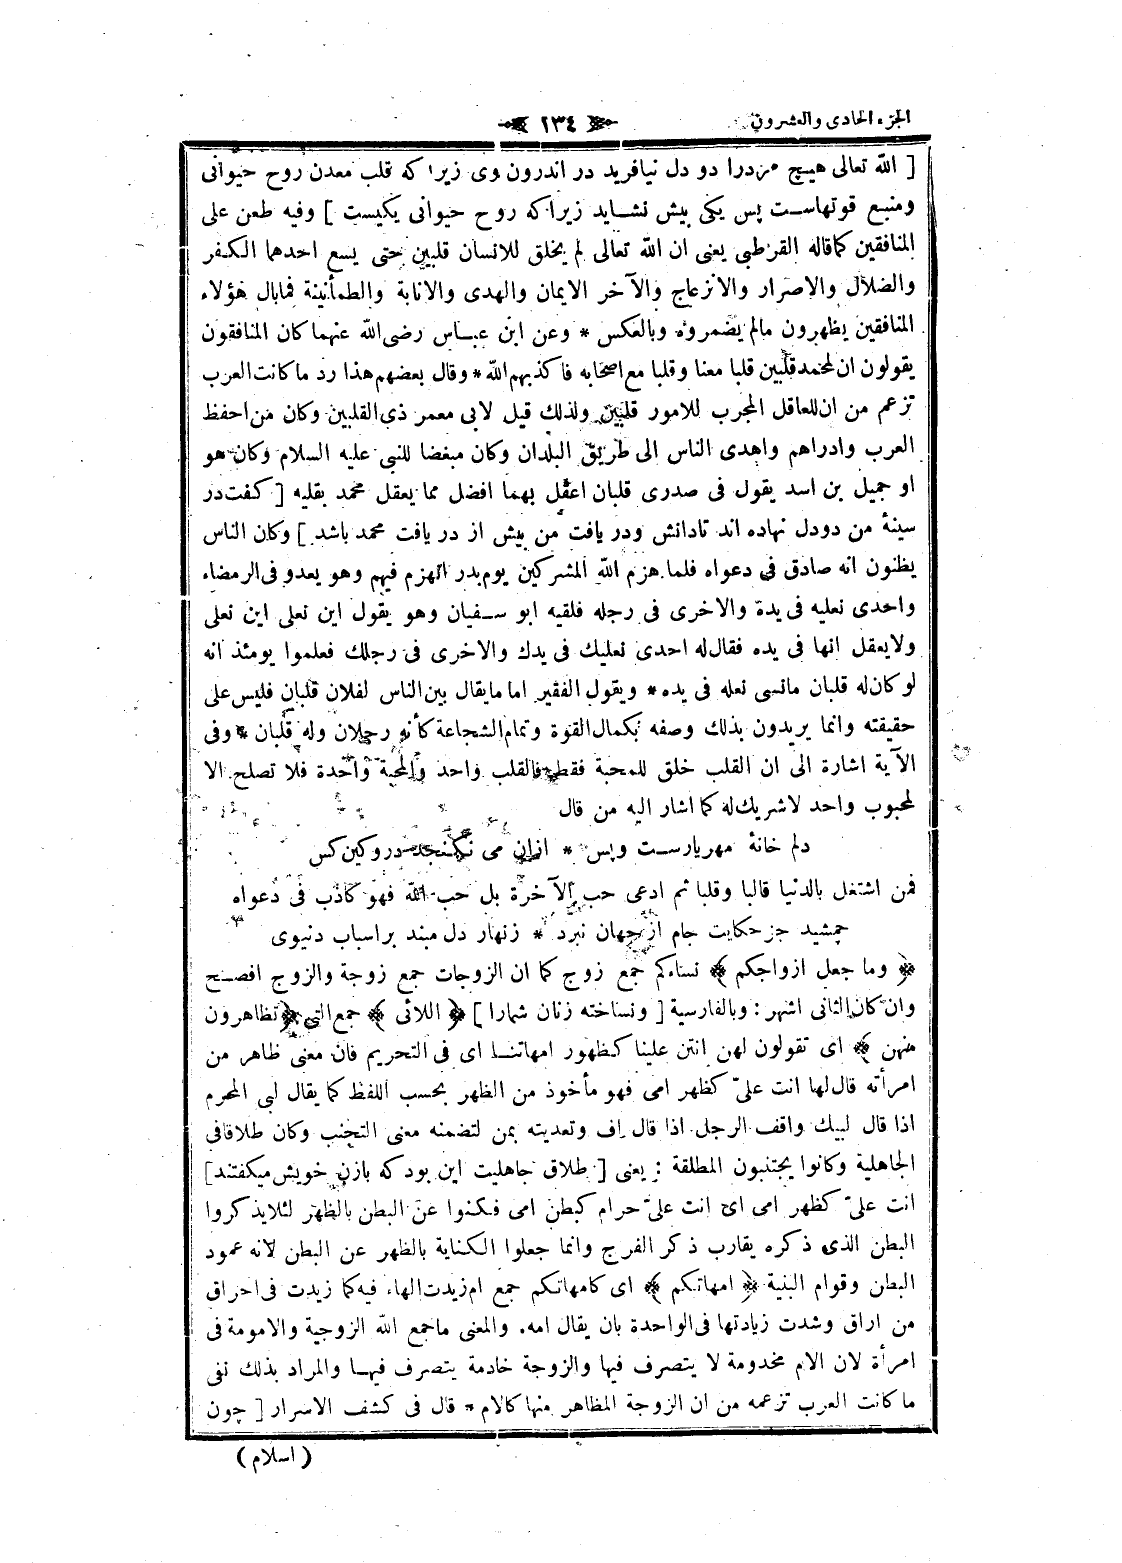 الجزء الحادى والعشرون
١٣٤
[ الله تعالى هيچ مردرا دو دل نيافريد در اندرون وى زيرا كه قلب معدن روح حيوانى
ومنبع قوتهاست پس يكى بيش نشايد زيرا كه روح حيوانى يكيست ] وفيه طعن على
المنافقين كما قاله القرطبى يعنى ان الله تعالى لم يخلق للانسان قلبين حتى يسع احدهما الكفر
والضلال والاصرار والانزعاج والآخر الايمان والهدى والانابة والطمأنينة فمابال هؤلاء
المنافقين يظهرون مالم يضمروه وبالعكس * وعن ابن عباس رضى الله عنهما كان المنافقون
يقولون ان لمحمد قلبين قلبا معنا وقلبا مع اصحابه فاكذبهم الله * وقال بعضهم هذا رد ما كانت العرب
تزعم من ان للعاقل المجرب للامور قلبين ولذلك قيل لابى معمر ذى القلبين وكان من احفظ
العرب وادراهم واهدى الناس الى طريق البلدان وكان مبغضا للنبى عليه السلام وكان هو
او جميل بن اسد يقول فى صدرى قلبان اعقل بهما افضل مما يعقل محمد بقلبه [ كفت در
سينهٔ من دودل نهاده اند تادانش ودر يافت من بيش از در يافت محمد باشد ] وكان الناس
يظنون انه صادق فى دعواه فلما هزم الله المشركين يوم بدر انهزم فيهم وهو يعدو فى الرمضاء
واحدى نعليه فى يده والاخرى فى رجله فلقيه ابو سفيان وهو يقول اين نعلى اين نعلى
ولايعقل انها فى يده فقال له احدى نعليك فى يدك والاخرى فى رجلك فعلموا يومئذ انه
لو كان له قلبان مانسى نعله فى يده * ويقول الفقير اما مايقال بين الناس لفلان قلبان فليس على
حقيقته وانما يريدون بذلك وصفه بكمال القوة وتمام الشجاعة كأنه رجلان وله قلبان * وفى
الآية اشارة الى ان القلب خلق للمحبة فقط فالقلب واحد والمحبة واحدة فلا تصلح الا
لمحبوب واحد لاشريك له كما اشار اليه من قال
دلم خانهٔ مهريارست وبس * ازان مى نكنجد دروكين كس
فمن اشتغل بالدنيا قالبا وقلبا ثم ادعى حب الآخرة بل حب الله فهو كاذب فى دعواه
جمشيد جز حكايت جام از جهان نبرد * زنهار دل مبند براسباب دنيوى
﴿ وما جعل ازواجكم ﴾ نساءكم جمع زوج كما ان الزوجات جمع زوجة والزوج افصح
وان كان الثانى اشهر : وبالفارسية [ ونساخته زنان شمارا ] ﴿ اللائى ﴾ جمع التى ﴿ تظاهرون
منهن ﴾ اى تقولون لهن انتن علينا كظهور امهاتنا اى فى التحريم فان معنى ظاهر من
امرأته قال لها انت علىّ كظهر امى فهو مأخوذ من الظهر بحسب اللفظ كما يقال لبى المحرم
اذا قال لبيك واقف الرجل اذا قال اف وتعديته بمن لتضمنه معنى التجنب وكان طلاقا فى
الجاهلية وكانوا يجتنبون المطلقة : يعنى [ طلاق جاهليت اين بود كه بازن خويش ميكفتند]
انت علىّ كظهر امى اى انت علىّ حرام كبطن امى فكنوا عن البطن بالظهر لئلايذكروا
البطن الذى ذكره يقارب ذكر الفرج وانما جعلوا الكناية بالظهر عن البطن لانه عمود
البطن وقوام البنية ﴿ امهاتكم ﴾ اى كامهاتكم جمع ام زيدت الهاء فيه كما زيدت فى احراق
من اراق وشدت زيادتها فى الواحدة بان يقال امه. والمعنى ماجمع الله الزوجية والامومة فى
امرأة لان الام مخدومة لا يتصرف فيها والزوجة خادمة يتصرف فيها والمراد بذلك نفى
ما كانت العرب تزعمه من ان الزوجة المظاهر منها كالام * قال فى كشف الاسرار [ چون
( اسلام )